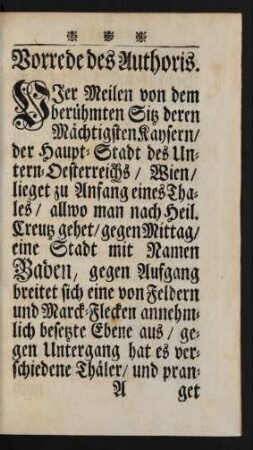 Vorrede des Authoris.
VIer Meilen von dem
berühmten Sitz deren
Mächtigsten Kaysern/
der Haupt-Stadt des Un-
tern-Oesterreichs/ Wien/
lieget zu Anfang eines Tha-
les/ allwo man nach Heil.
Creutz gehet/ gegen Mittag/
eine Stadt mit Namen
Baden, gegen Aufgang
breitet sich eine von Feldern
und Marck-Flecken annehm-
lich besetzte Ebene aus/ ge-
gen Untergang hat es ver-
schiedene Thäler/ und pran-
A get